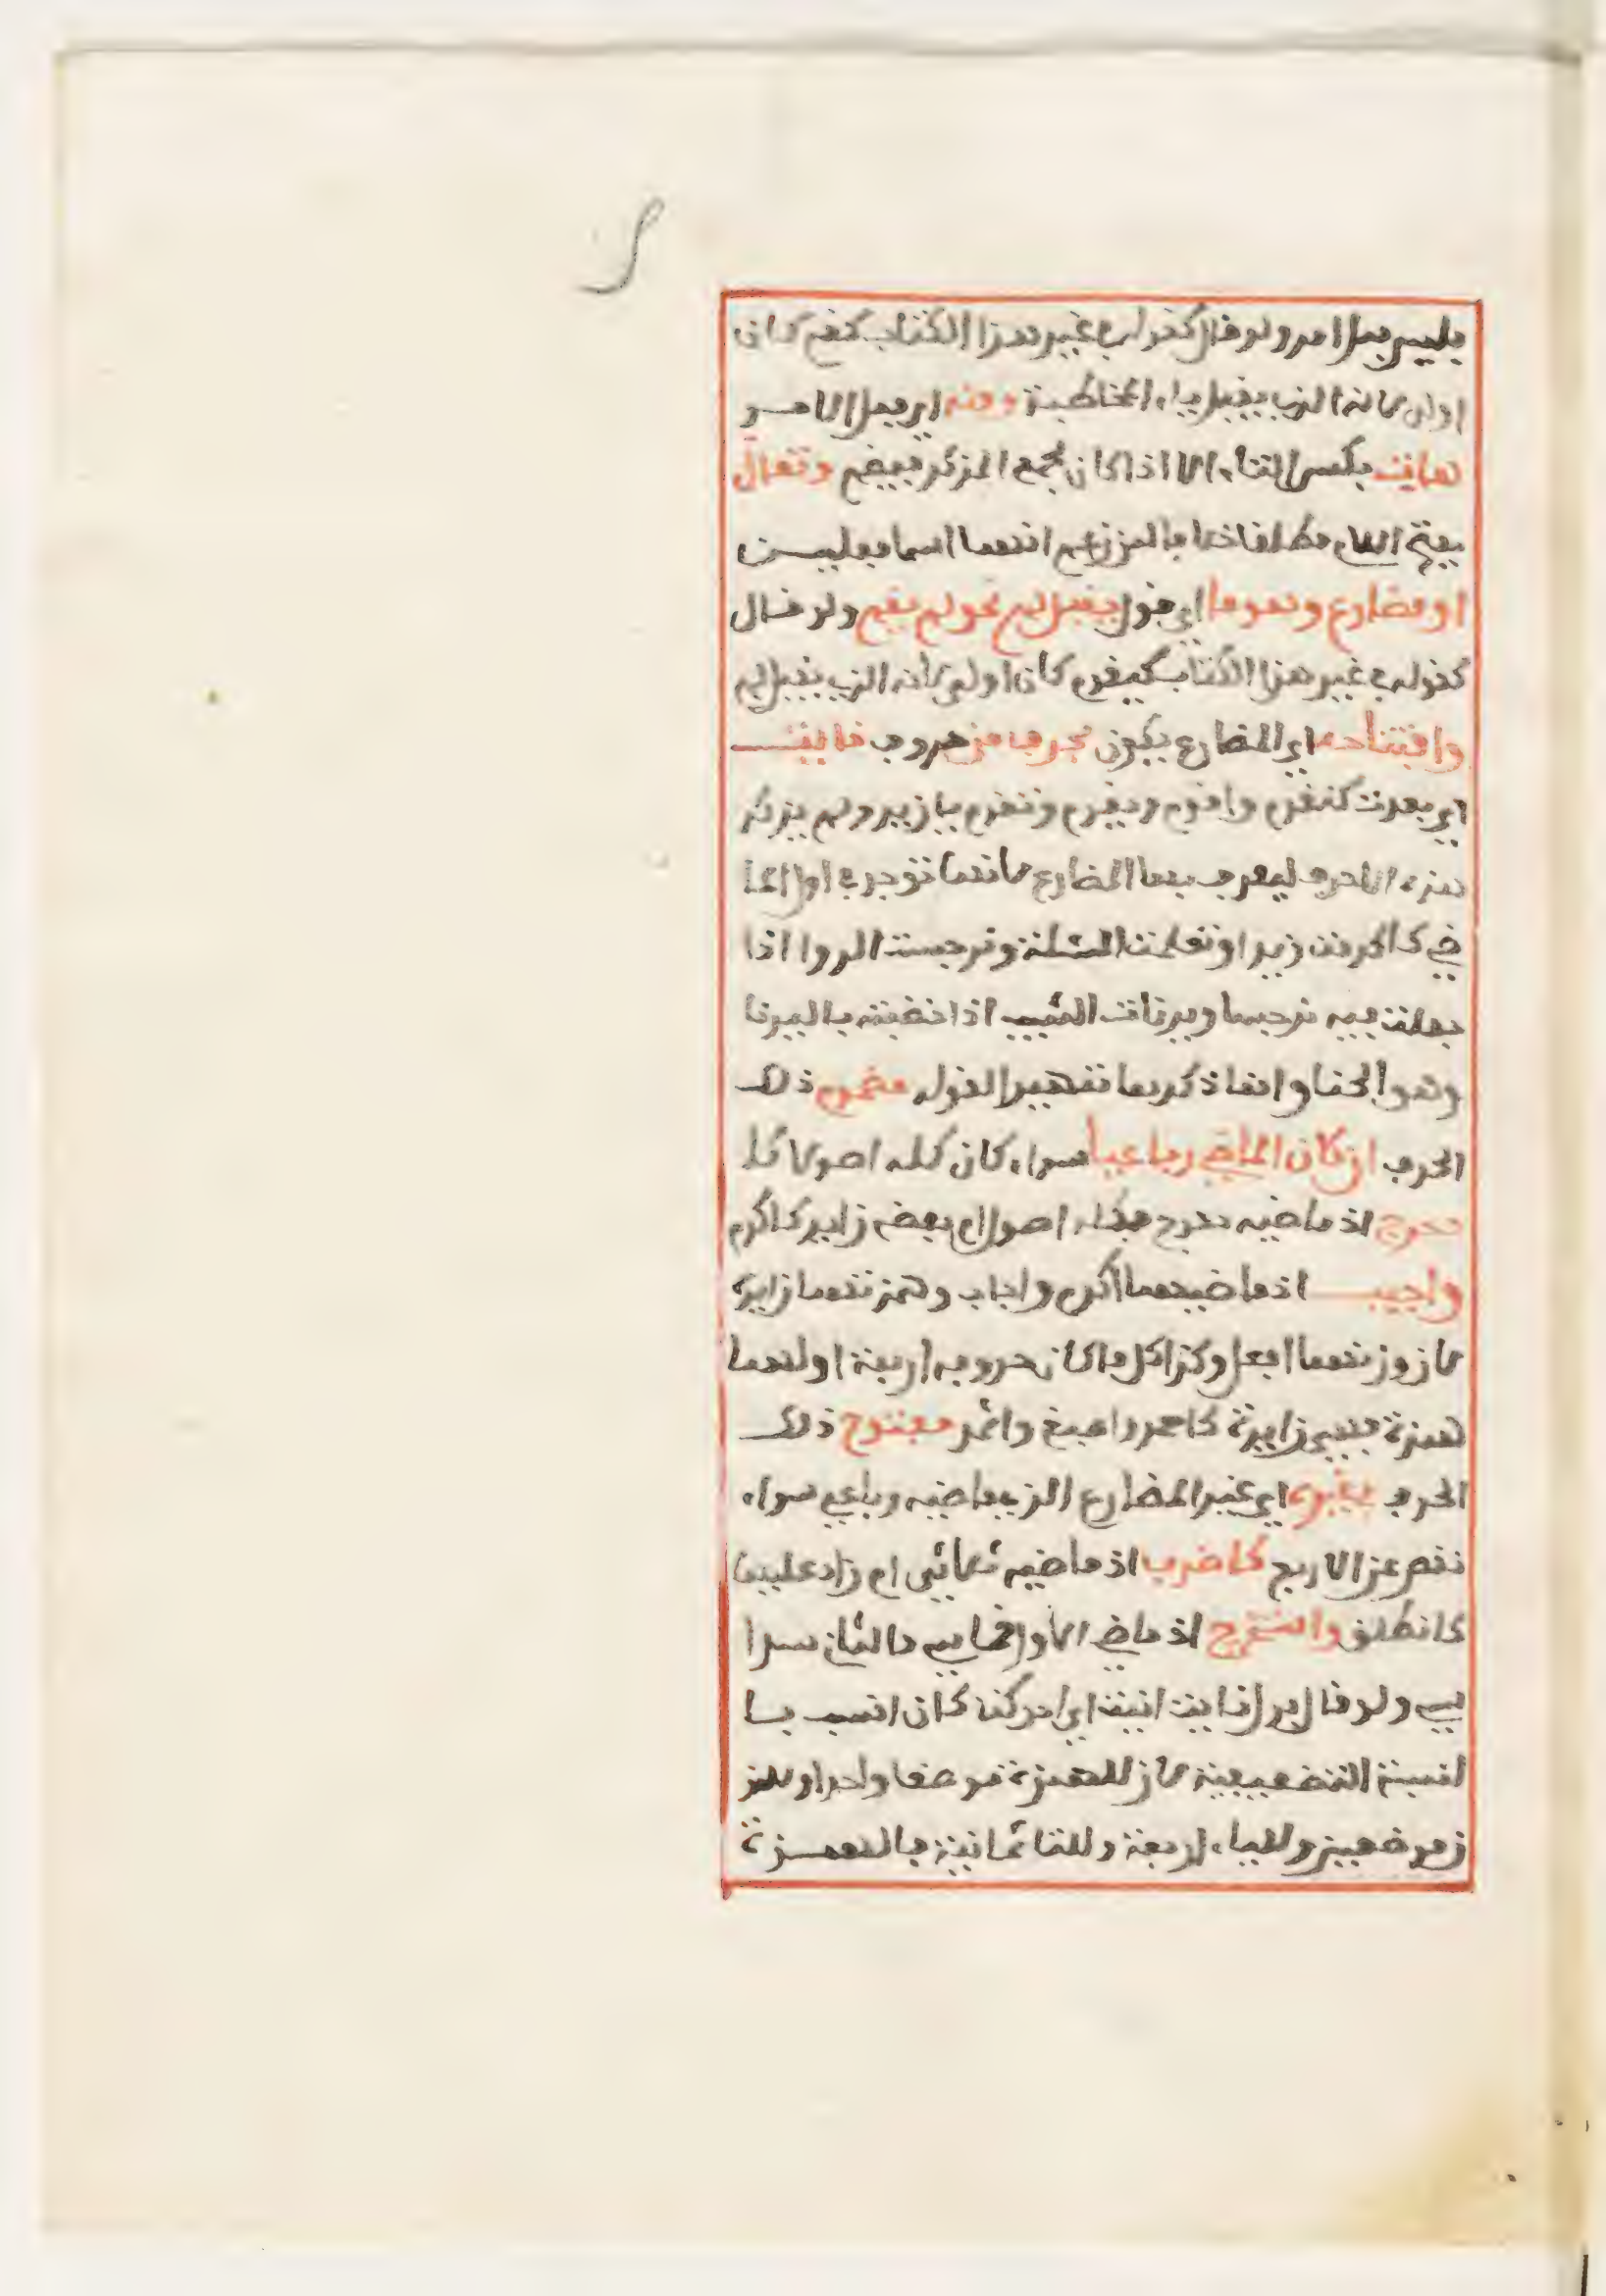 فليس فعل امر ولو قال كقوله في غير هذا الكتاب كقم كان
اولى لانه الذي يقبل ياء المخاطبة ومنه اي فعل الامر
هات بكسر التاء الا اذا كان لجمع المذكر فيضم وتعال
بفتح اللام مطلقا خلافا لمن زعم انهما اسما فعلين
او مضارع وهو ما اي فعل يقبل لم نحو لم يقم ولو قال
كقوله في غير هذا الكتاب كيقوم كان اولى لانه الذي يقبل لم
وافتتاحه اي المضارع يكون بحرف من حروف نايت
اي بعدت كنقوم واقوم ويقوم وتقوم يا زيد ولم يذكر
هذه الاحرف ليعرف بها المضارع لانها توجد في اول الما
ضي كاكرمت زيدا وتعلمت المسئلة ونرجست الدوا اذا
جعلت فيه نرجسا ويرنات الشيب اذا خضبته باليرنا
وهو الحنا وانما ذكرها تمهيدا لقوله مضموم ذلك
الحرف ان كان الماضي رباعيا سواء كان كله اصولا كد
حرج اذ ماضيه دحرج فكله اصول ام بعضه زايد كاكرم
واجيب اذ ماضيهما اكرم واجاب وهمزتهما زايدة
لان وزنهما افعل وكذا كل ما كان حروفه اربعة اولها
همزة فهي زايدة كاحمد واصبغ واثمد مفتوح ذلك
الحرف بغيره اي غير المضارع الذي ماضيه رباعي سواء
نقص عن الاربع كاضرب اذ ماضيه ثلاثي ام زاد عليها
كانطلق واستخرج اذ ماضي الاول خماسي والثاني سدا
سي ولو قال بدل نايت انيت اي ادركت كان انسب با
لنسبة التضعيفية لان للهمزة موضعا واحدا وللنو
ن موضعين وللياء اربعة وللتا ثمانية فالهمزة